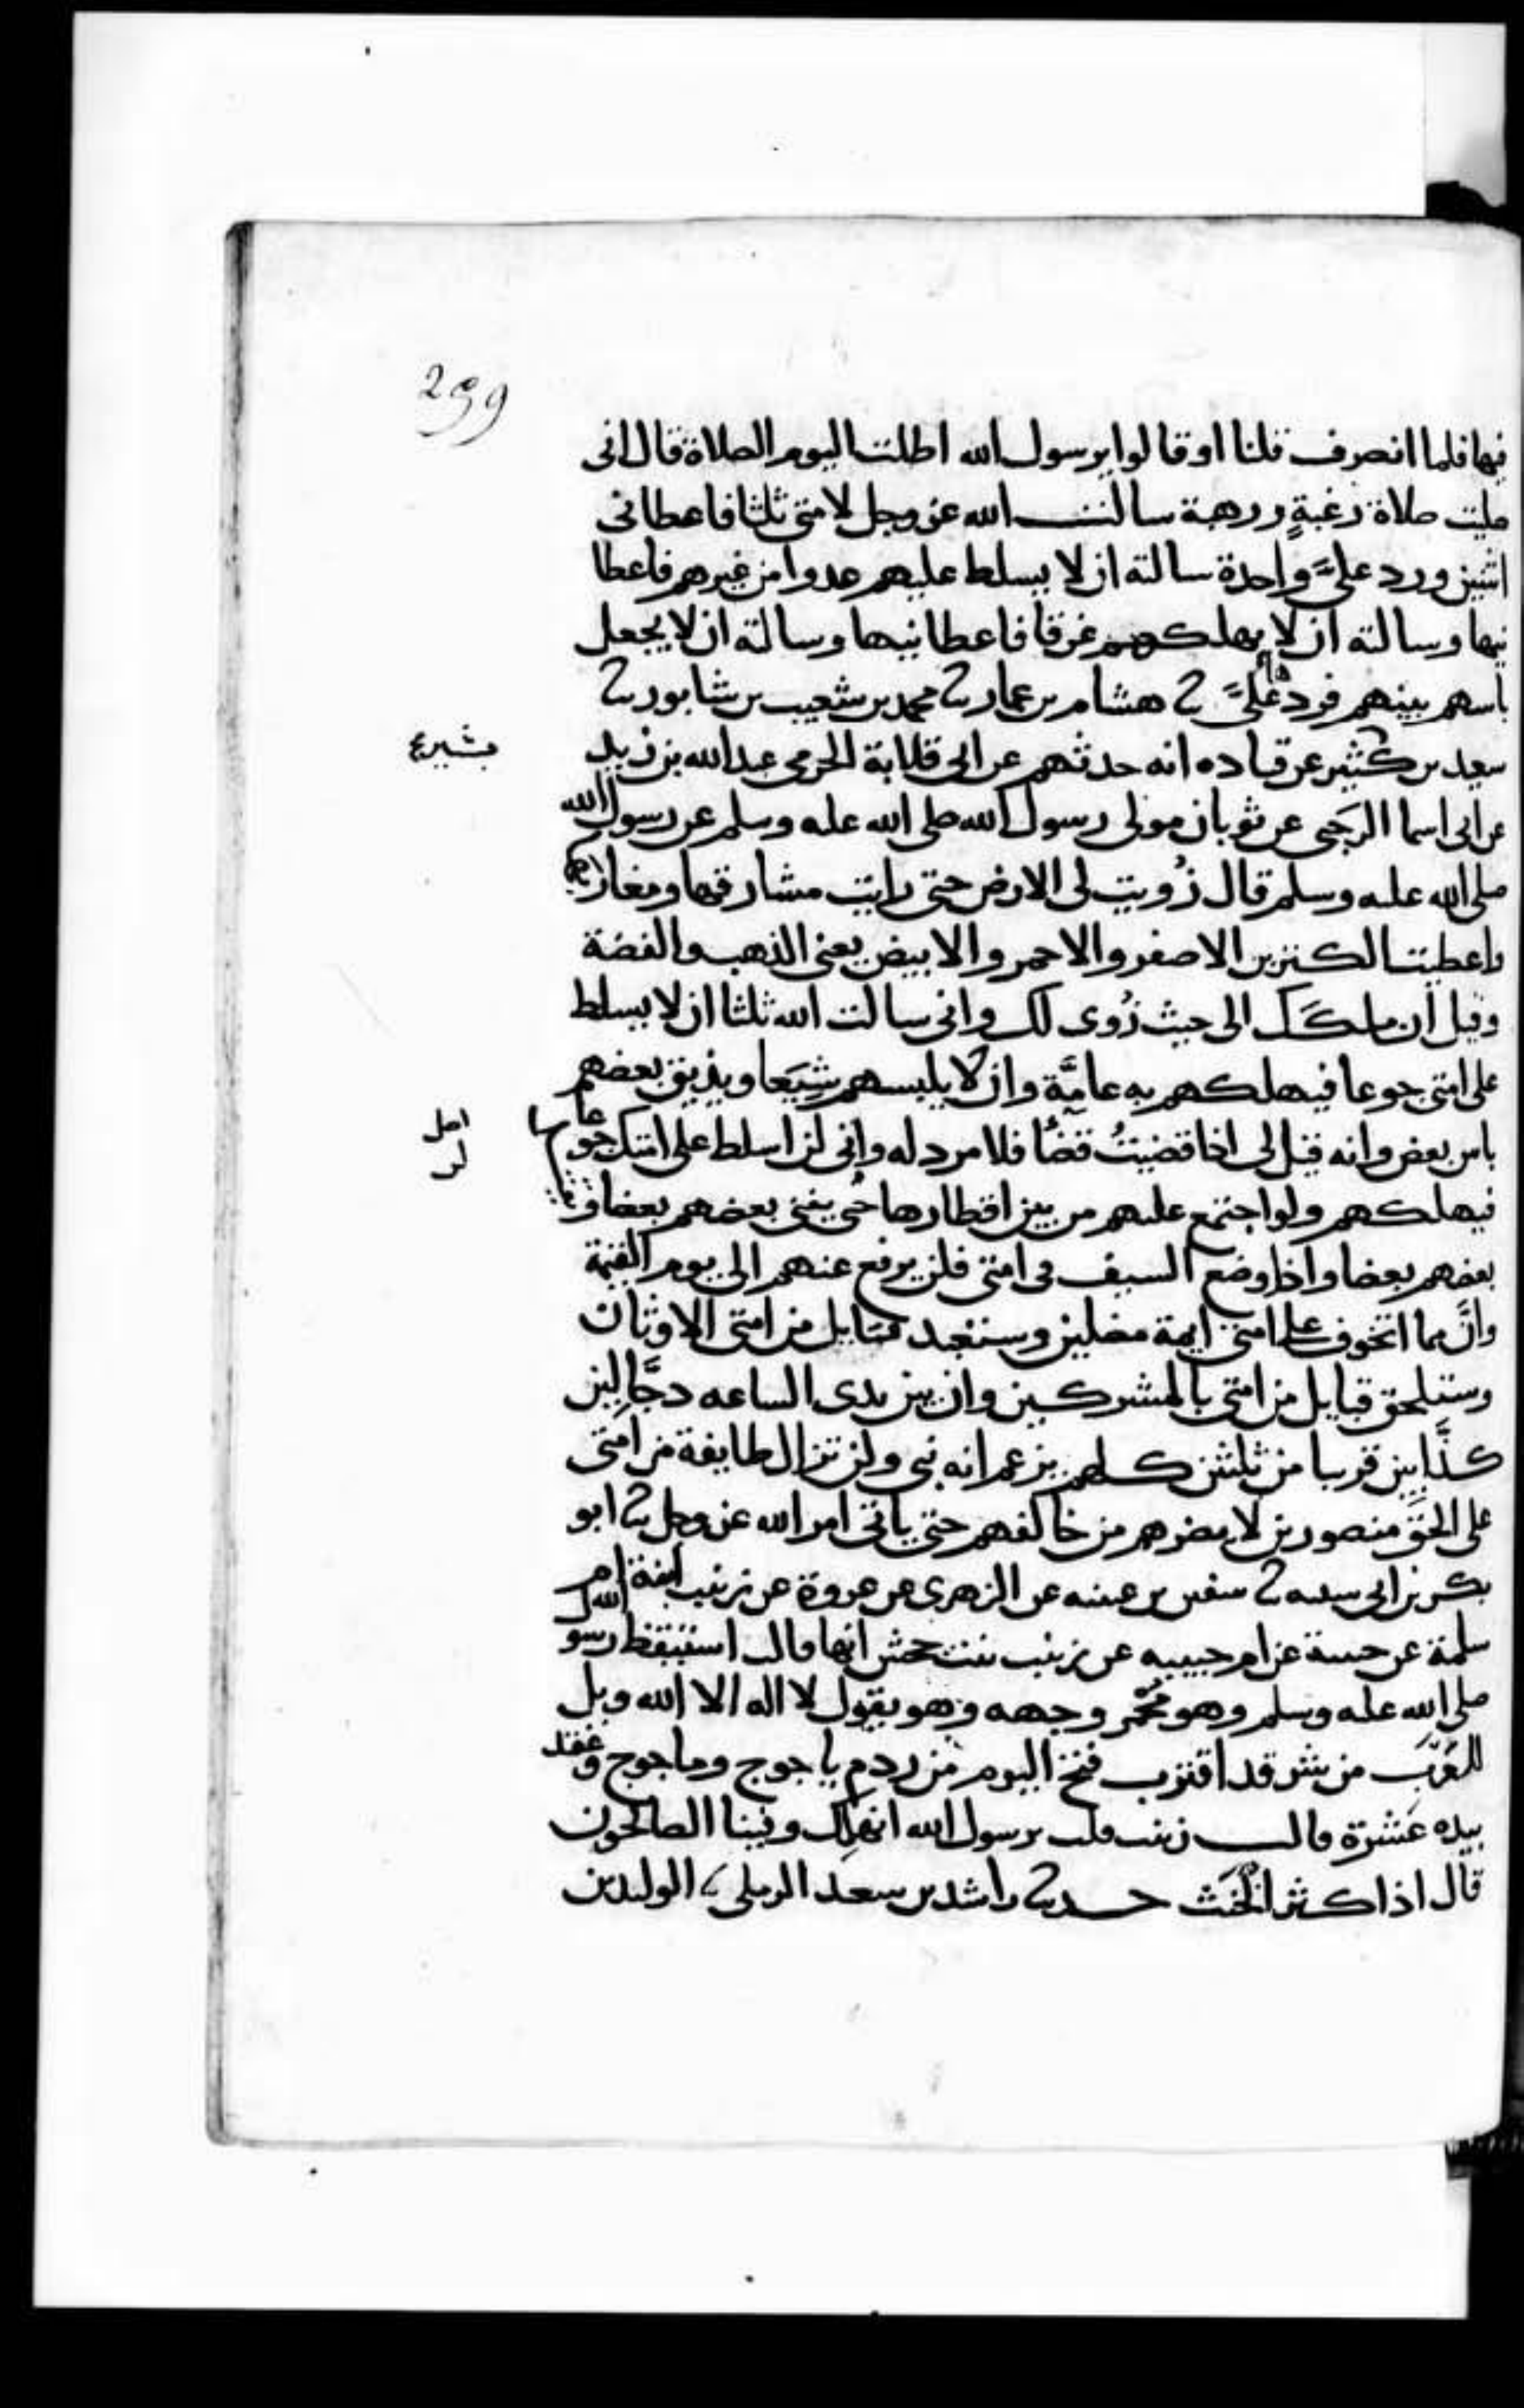 299
فيها فلما انصرف قلنا او قالوا يرسول الله اطلت اليوم الصلاة قال اني
صليت صلاة رغبةٍ ورهبة سالت الله عز وجل لامتي ثلثا فاعطاني
اثنتين ورد عليَّ واحدة سالته ان لا يسلط عليهم عدوا من غيرهم فاعطا
نيها وسالته ان لا يهلكهم غرقا فاعطانيها وسالته ان لا يجعل
باسهم بينهم فردها عليَّ ثنا هشام بن عمار ثنا محمد بن شعيب بن شابور ثنا
سعيد بن كثير عن قتاده انه حدثهم عن ابي قلابة الجرمي عبد الله بن زيد
بشير
عن ابي اسما الرحبي عن ثوبان مولى رسول الله صلى الله عليه وسلم عن رسول الله
صلى الله عليه وسلم قال زُويت لي الارض حتى رايت مشارقها ومغاربها
واعطيت الكنزين الاصفر والاحمر والابيض يعني الذهب والفضة
وقيل ان ملكَك الى حيث زُوى لك واني سالت الله ثلثا ان لا يسلط
على امتي جوعا فيهلكهم به عامَّة وان لا يلبسهم شِيَعا ويذيق بعضهم
باس بعض وانه قيل لي اذا قضيتُ قضاً فلا مرد له واني لن اسلط على امتك جوعا
فيهلكهم ولو اجتمع عليهم من بين اقطارها حتى يفني بعضهم بعضا و
بعضهم بعضا واذا وضع السيف في امتي فلن يرفع عنهم الى يوم القيمة
وانَّ مما اتخوف على امتي ايمة مضلين وستعبد قبايل من امتي الاوثان
وستلحق قبايل من امتي بالمشركين وان بين يدى الساعه دجَّالين
كذَّابين قريبا من ثلثين كلهم يزعم انه نبي ولن تزال طايفة من امتي
على الحقّ منصورين لا يضرهم من خالفهم حتى ياتي امر الله عز وجل ثنا ابو
بكر بن ابي شيبه ثنا سفين بن عيينه عن الزهرى عن عروة عن زينب ابنة ام
سلمة عن حبيبة عن ام حبيبه عن زينب بنت جحش انها قالت استيقظ رسول الله
صلى الله عليه وسلم وهو محمّر وجهه وهو يقول لا اله الا الله ويل
للعَرَب من شر قد اقترب فتح اليوم من ردم ياجوج وماجوج وعقد
بيده عَشرة قالت زينب قلت يرسول الله انهلك وفينا الصالحون
قال اذا كثر الخَبَث حدثنا راشد بن سعد الرملي ثنا الوليد بن